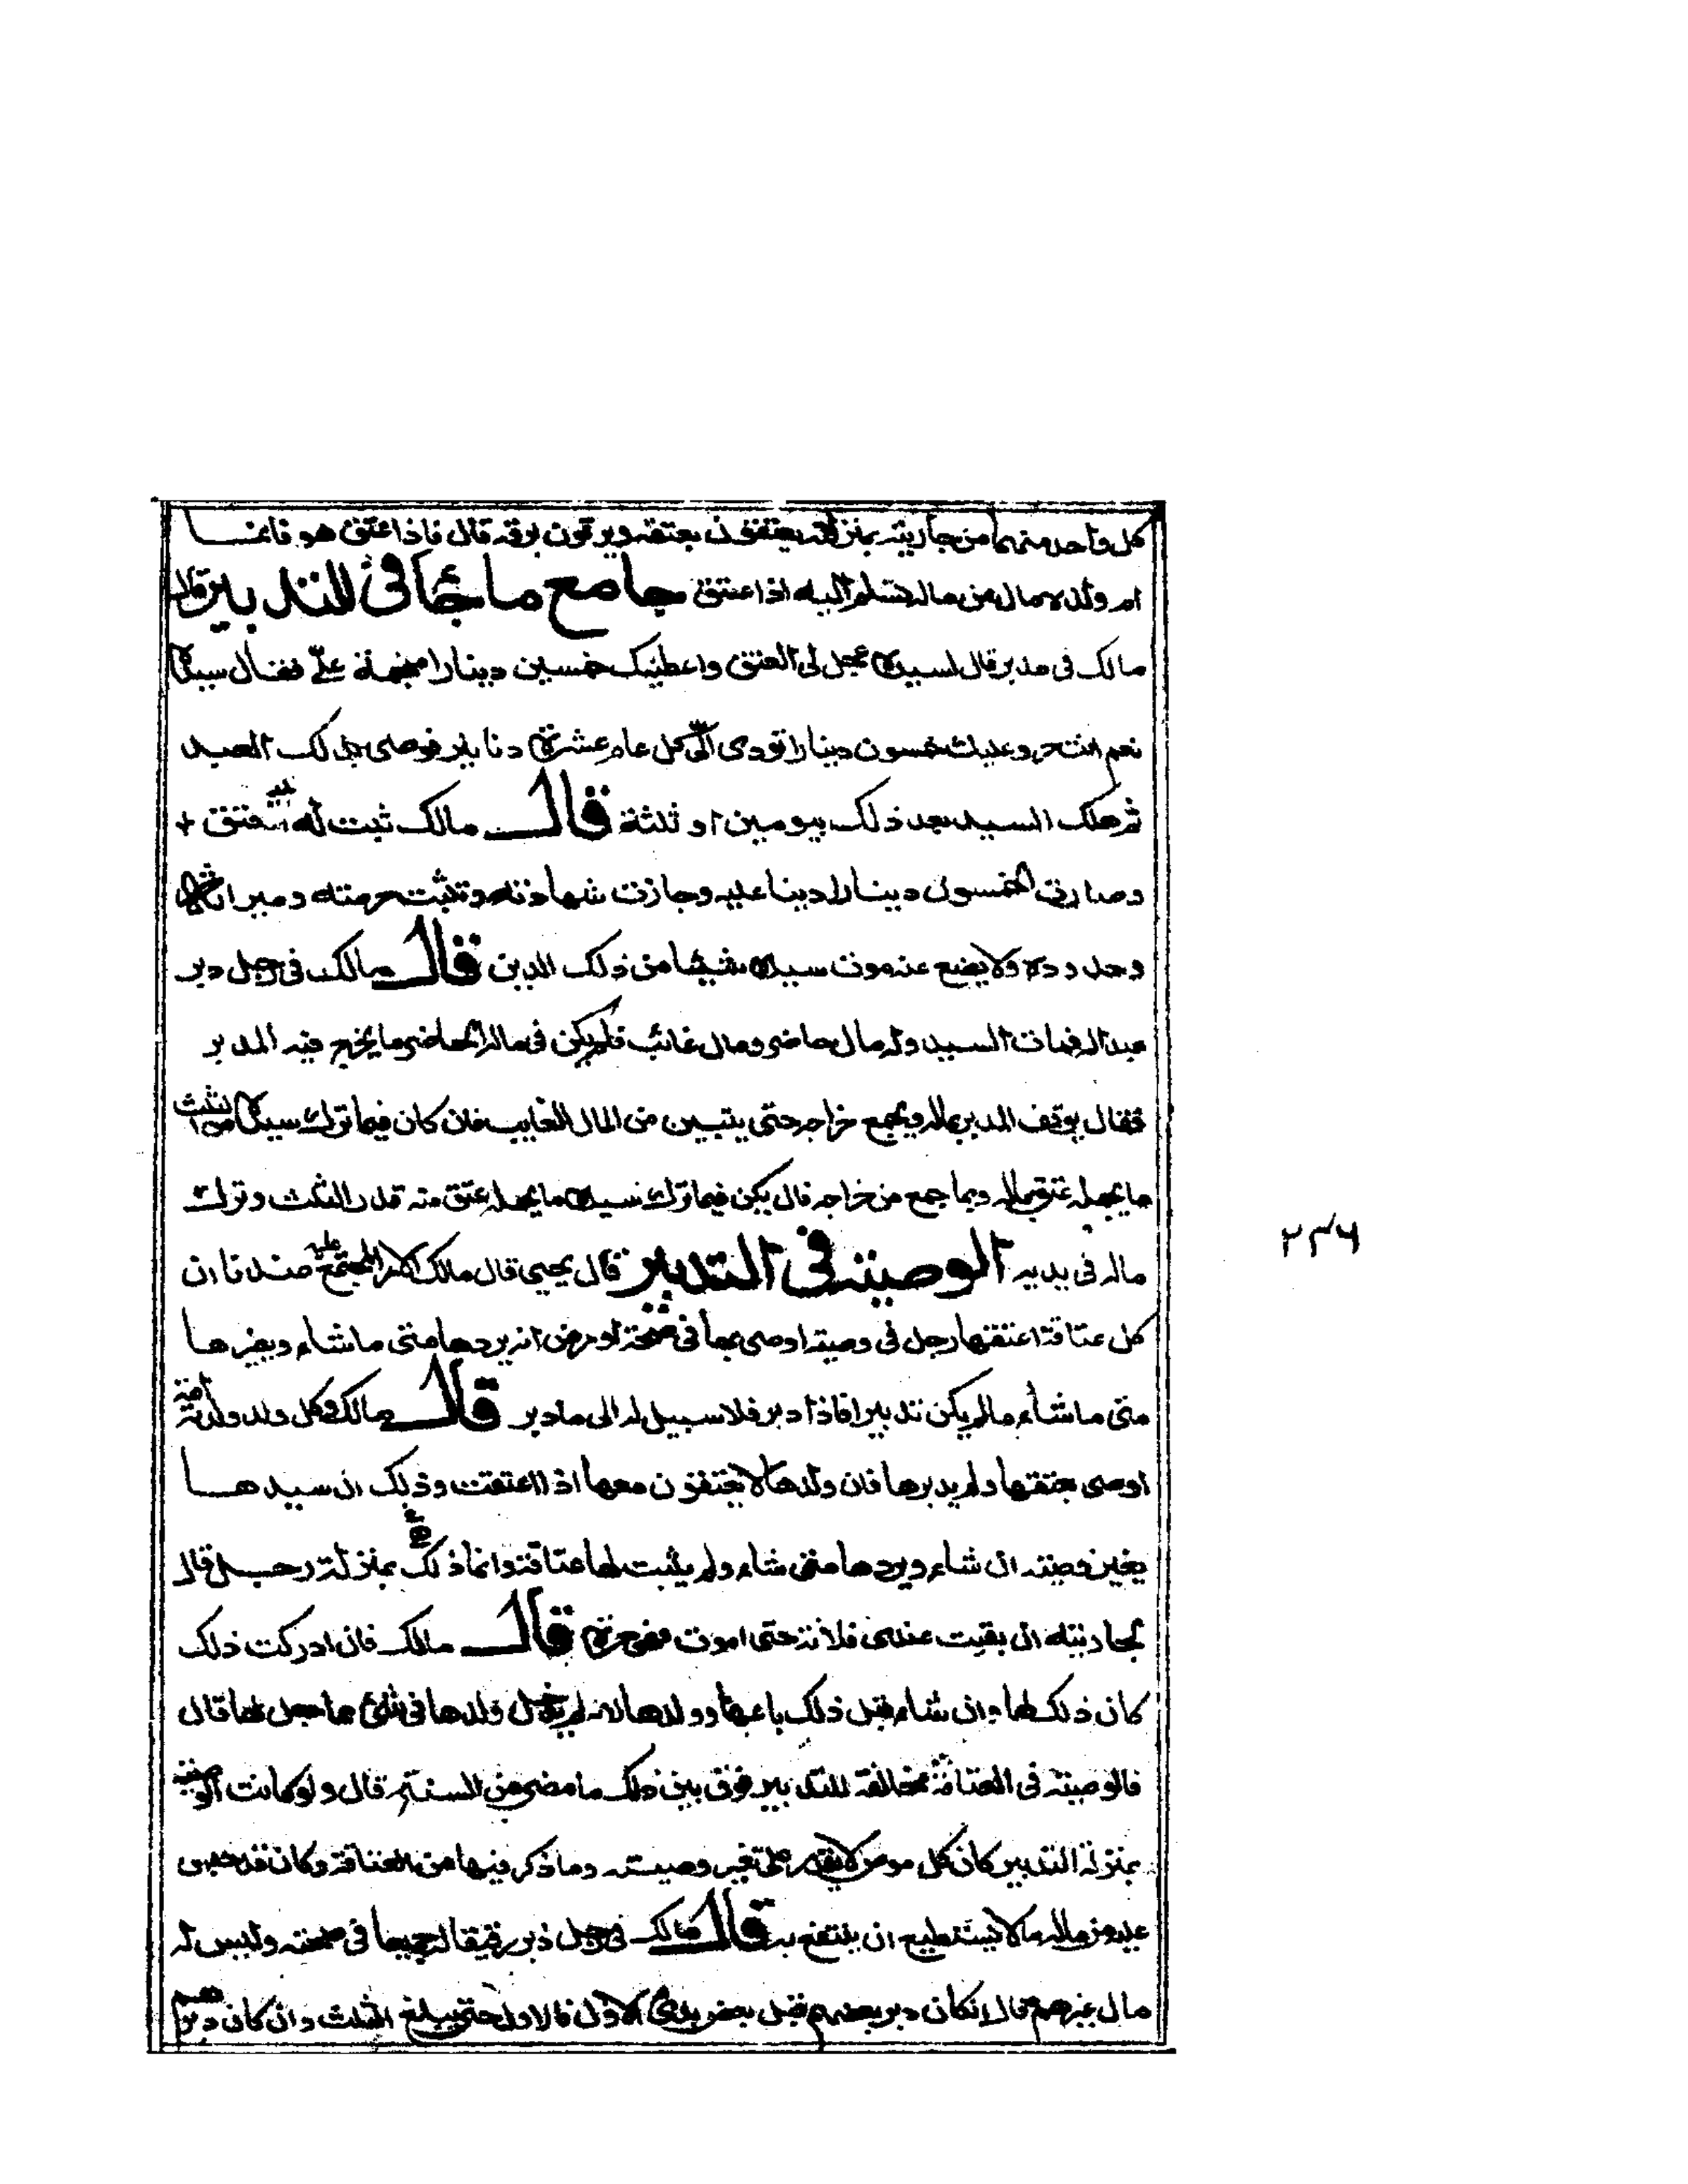 كل واحد منهما من جاريته بمنزلته يعتقون بعتقه ويرقون برقه قال فاذا اعتق هو فانما
ام ولده مال من ماله تسلم اليه اذا عتق جامع ما جاء في التدبير قال
مالك في مدبر قال لسيده عجل لي العتق واعطيك خمسين دينارا منجمة علي فقال سيده
نعم انت حر وعليك خمسون دينارا تودى الي كل عام عشرة دنانير فرضى بذلك العبد
ثم هلك السيد بعد ذلك بيومين او ثلثة قال مالك ثبت له العتق
وصارت الخمسون دينارا دينا عليه وجازت شهادته وتثبت حرمته وميراثه
وحدوده ولا يضع عنه موت سيده شيئا من ذلك الدين قال مالك في رجل دبر
عبدا له فمات السيد وله مال حاضر ومال غائب فلم يكن في ماله الحاضر ما يخرج فيه المدبر
فقال يوقف المدبر بماله ويجمع خراجه حتى يتبين من المال الغايب فان كان فيما ترك سيده من الثلث
ما يحمله عتق بماله وبما جمع من خراجه فان لم يكن فيما ترك سيده ما يحمله عتق منه قدر الثلث وترك
ماله في يديه الوصية في التدبير قال يحيى قال مالك الامر المجتمع عليه عندنا ان
كل عتاقة اعتقها رجل في وصية اوصى بها في صحة او مرض انه يردها متى ما شاء ويغيرها
متى ما شاء ما لم يكن تدبيرا فاذا دبر فلا سبيل له الى ما دبر قال مالك وكل ولد ولدته امة
اوصى بعتقها ولم يدبرها فان ولدها لا يعتقون معها اذا اعتقت وذلك ان سيدها
يغير وصيته ان شاء ويردها متى شاء ولم يثبت لها عتاقة وانما ذلك بمنزلة رجل قال
لجاريته ان بقيت عندى فلانة حتى اموت فهي حرة قال مالك فان ادركت ذلك
كان ذلك لها وان شاء قبل ذلك باعها وولدها لانه لم يدخل ولدها في شئ مما جعل لها قال
فالوصية في العتاقة مخالفة للتدبير فرق بين ذلك ما مضى من السنة قال ولو كانت الوصية
بمنزلة التدبير كان كل موص لا يقدر على تغير وصيته وما ذكر فيها من العتاقة وكان قد حبس
عليه من ماله ما لا يستطيع ان ينتفع به قال مالك في رجل دبر رقيقا له جميعا في صحته وليس له
مال غيرهم قال ان كان دبر بعضهم قبل بعض بدئ الاول فالاول حتى يبلغ الثلث وان كان دبرهم
٢٣٦